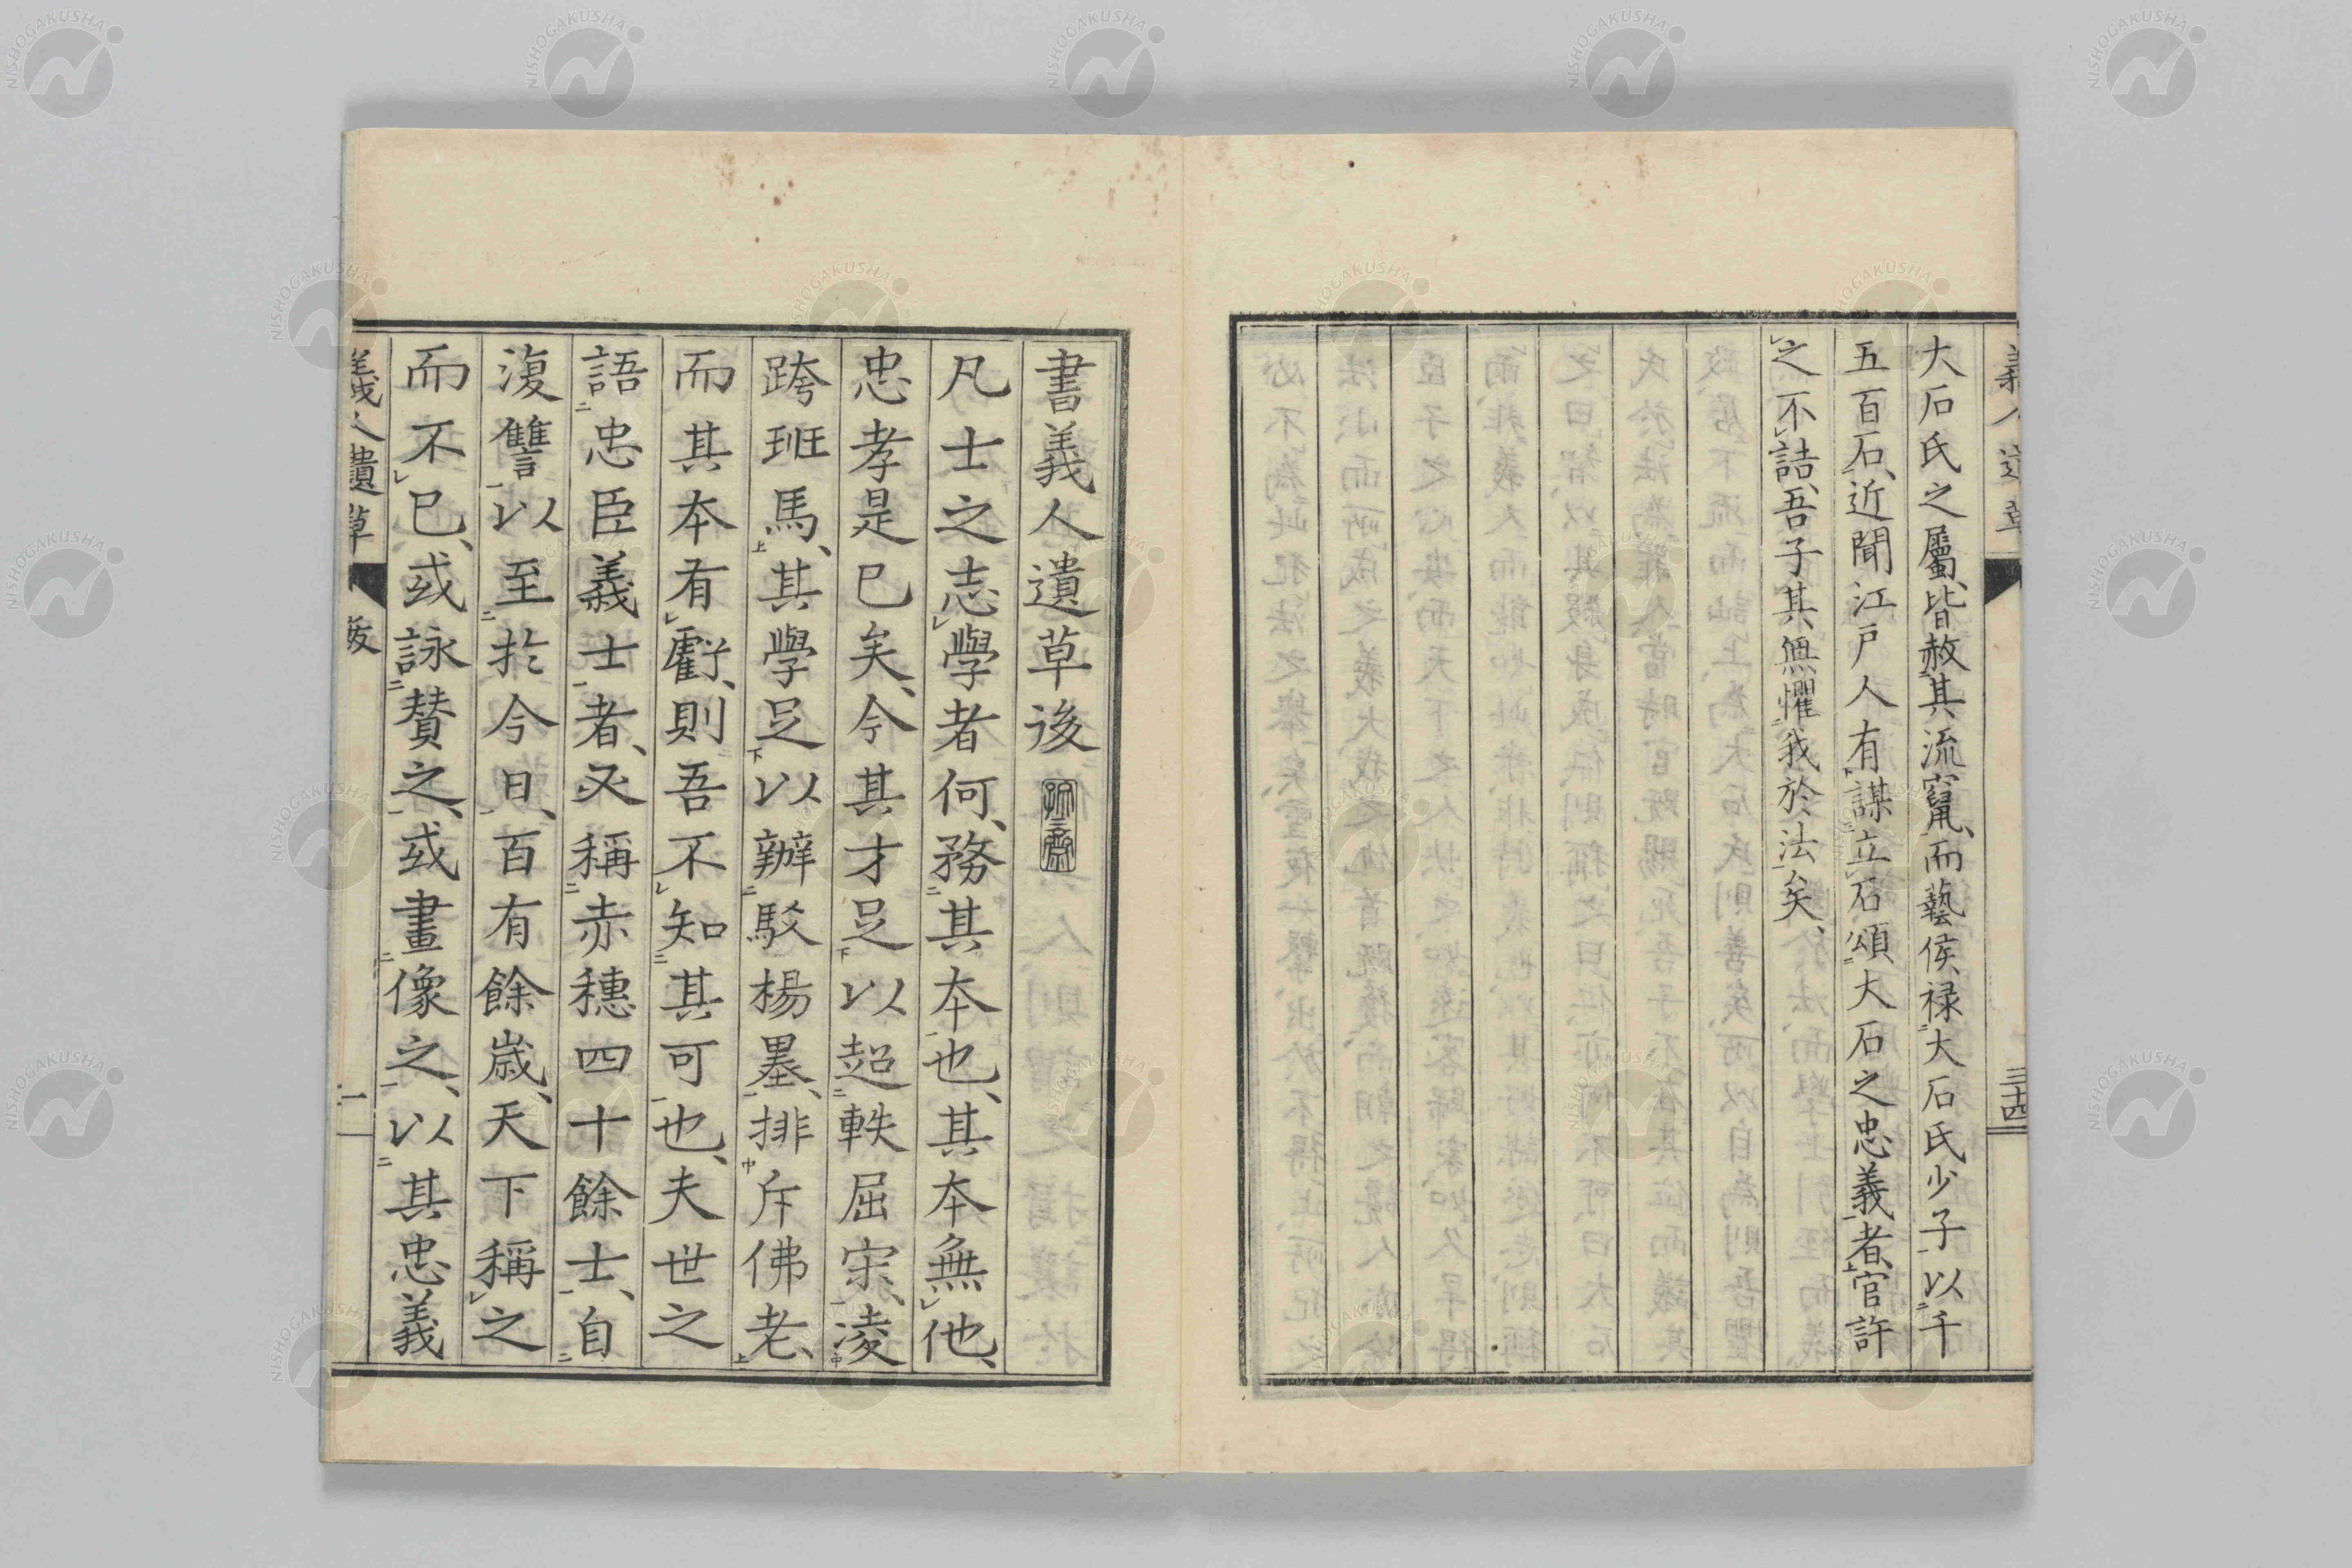 義人遺草
三十四
大石氏之屬、皆赦其流竄、而藝侯、祿大石氏少子以千
五百石、近聞江戸人有謀立石頌大石之忠義者、官許
之不詰、吾子其無懼我於法矣、
書義人遺草後
凡士之志學者何、務其本也、其本無他、
忠孝是已矣、今其才足以超軼屈宋、凌
跨班馬、其學足以辧駁楊墨、排斥佛老、
而其本有虧、則吾不知其可也、夫世之
語忠臣義士者、必稱赤穗四十餘士、自
復讐以至於今日、百有餘歳、天下稱之
而不已、或詠賛之、或畫像之、以其忠義
義人遺草
跋
一
NISHOGAKUSHA